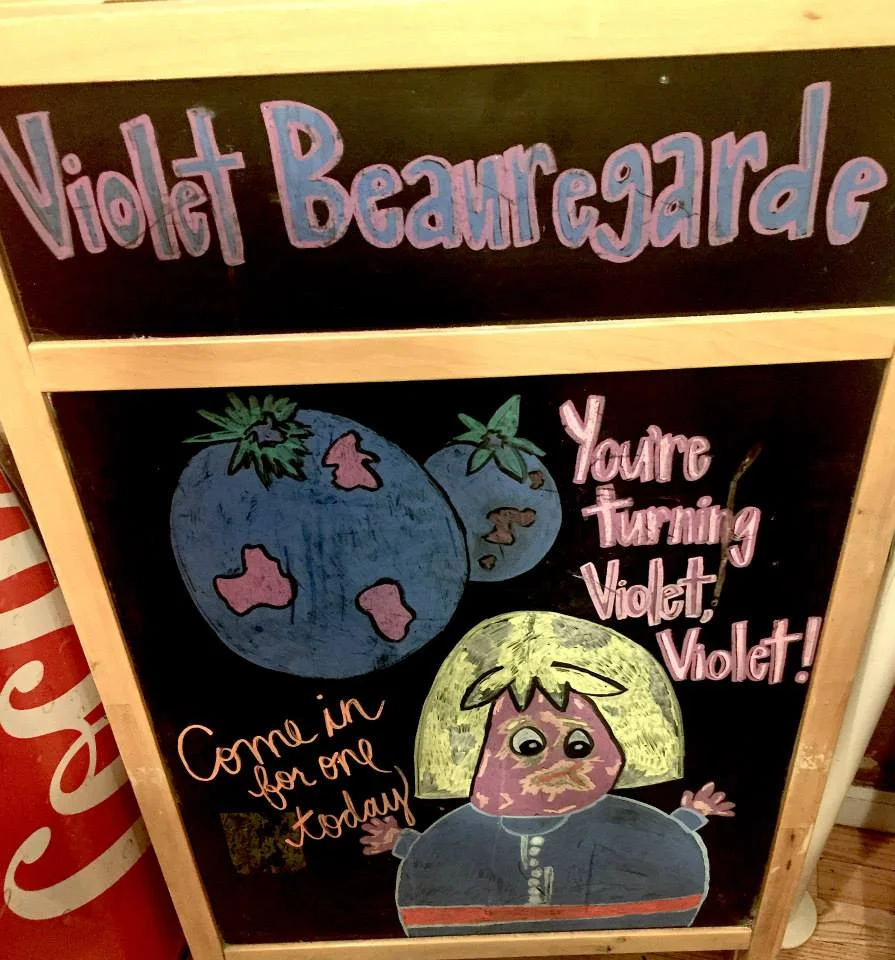 Violet Beauregarde
You're
turning
Violet,
Violet!
Come in
for one
today